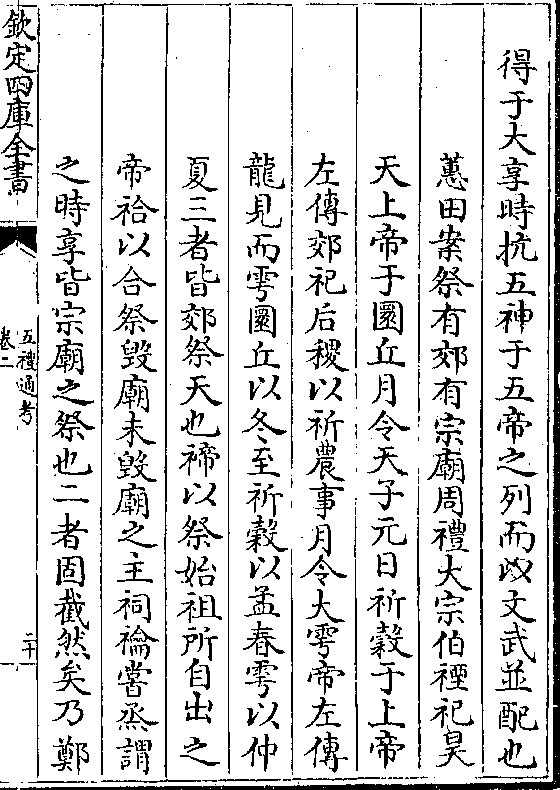 得于大享時抗五神于五帝之列而改文武並配也
蕙田案祭有郊有宗廟周禮大宗伯禋祀昊
天上帝于圜丘月令天子元日祈穀于上帝
左傳郊祀后稷以祈農事月令大雩帝左傳
龍見而雩圜丘以冬至祈穀以孟春雩以仲
夏三者皆郊祭天也禘以祭始祖所自出之
帝祫以合祭毀廟未毀廟之主祠禴嘗烝謂
之時享皆宗廟之祭也二者固截然矣乃鄭
欽定四庫全書
五禮通考
卷二
二十